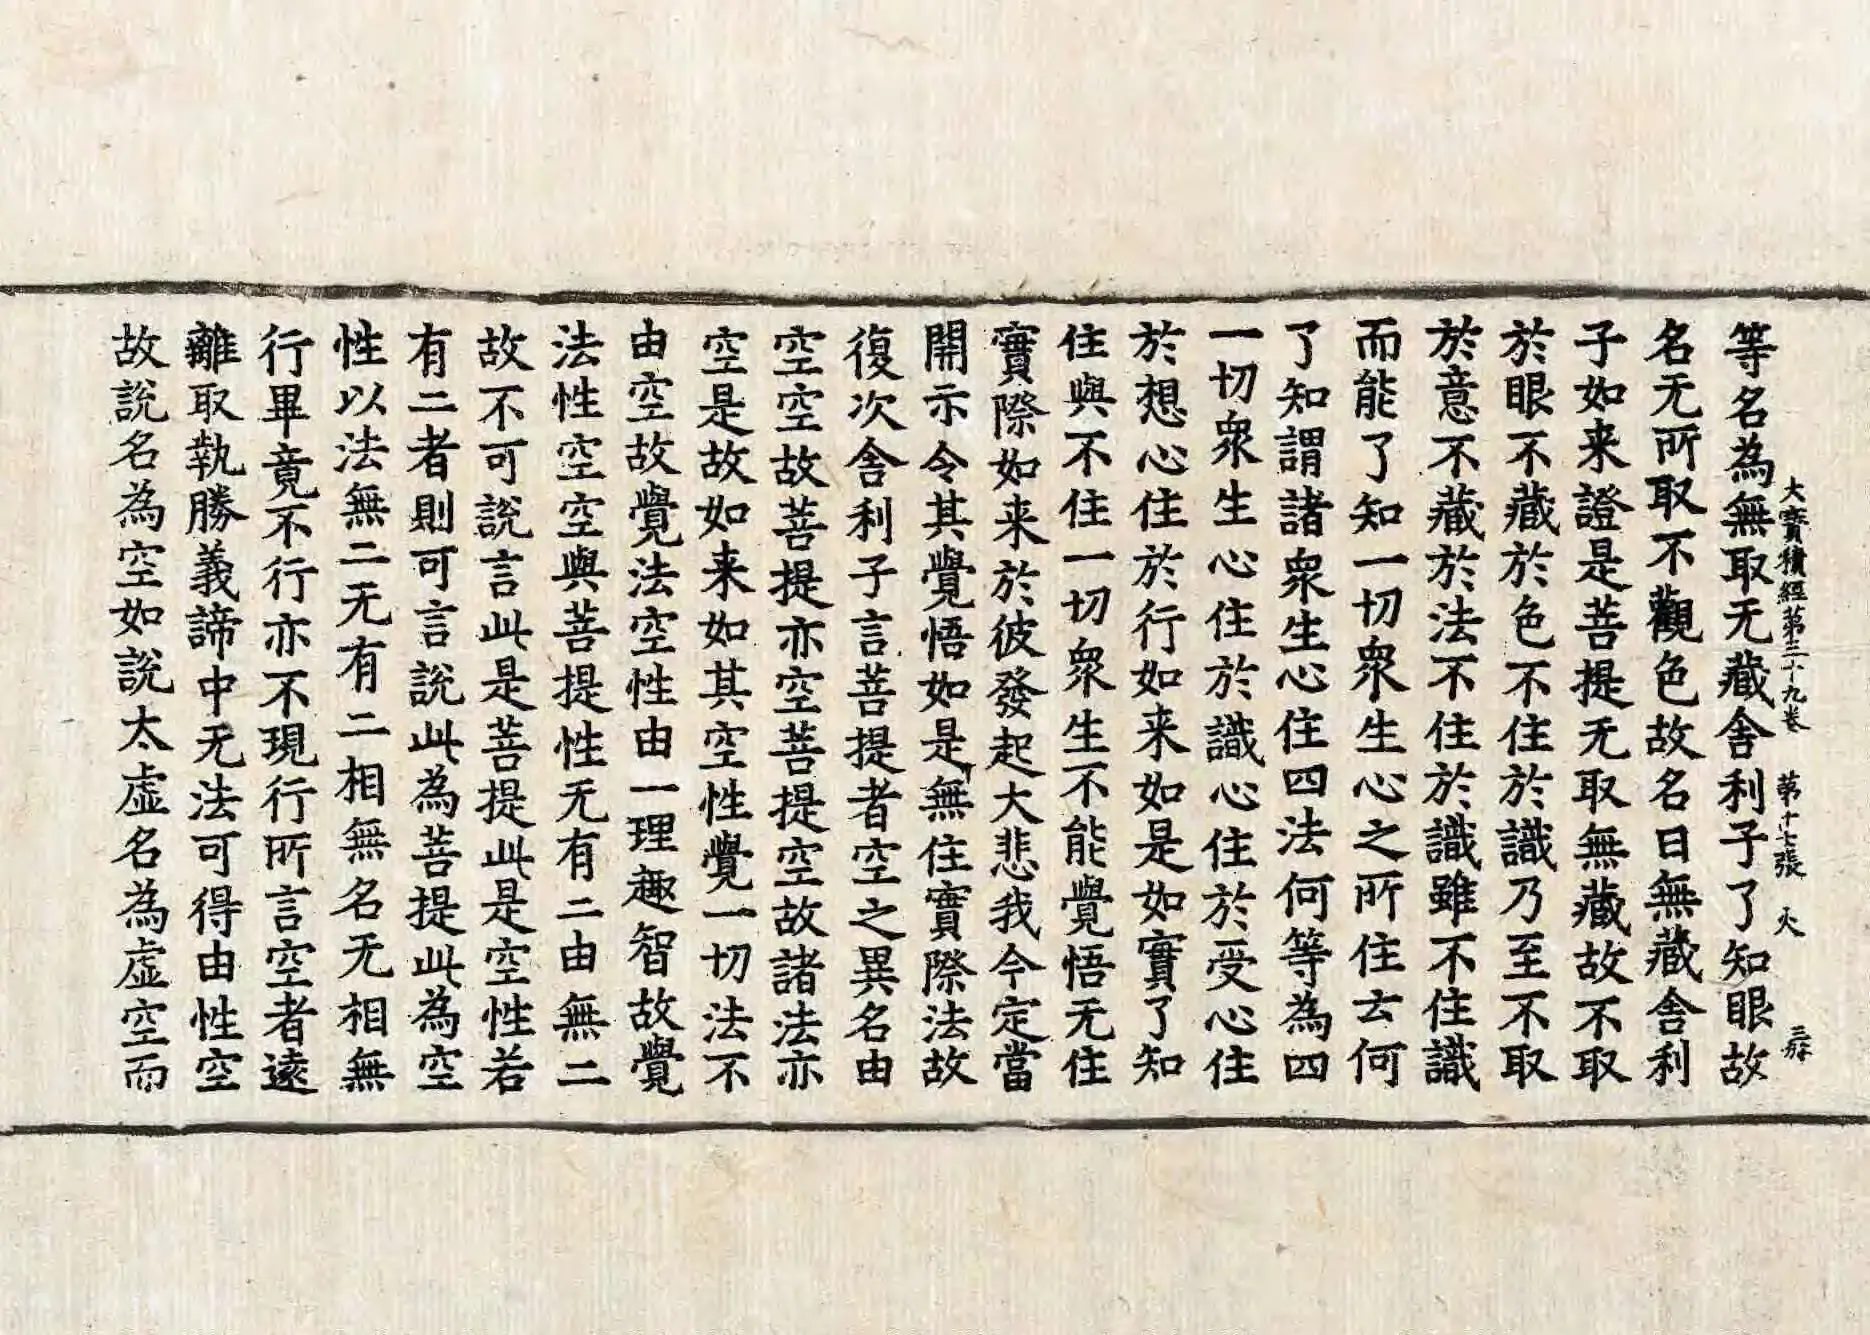 大寶積經第三十九卷 第十七張 火
等名為無取无藏舍利子了知眼故
名无所取不觀色故名曰無藏舍利
子如来證是菩提无取無藏故不取
於眼不藏於色不住於識乃至不取
於意不藏於法不住於識雖不住識
而能了知一切衆生心之所住云何
了知謂諸衆生心住四法何等為四
一切衆生心住於識心住於受心住
於想心住於行如来如是如實了知
住與不住一切衆生不能覺悟无住
實際如来於彼發起大悲我今定當
開示令其覺悟如是無住實際法故
復次舍利子言菩提者空之異名由
空空故菩提亦空菩提空故諸法亦
空是故如来如其空性覺一切法不
由空故覺法空性由一理趣智故覺
法性空空與菩提性无有二由無二
故不可說言此是菩提此是空性若
有二者則可言說此為菩提此為空
性以法無二无有二相無名无相無
行畢竟不行亦不現行所言空者遠
離取執勝義諦中无法可得由性空
故說名為空如說太虛名為虛空而